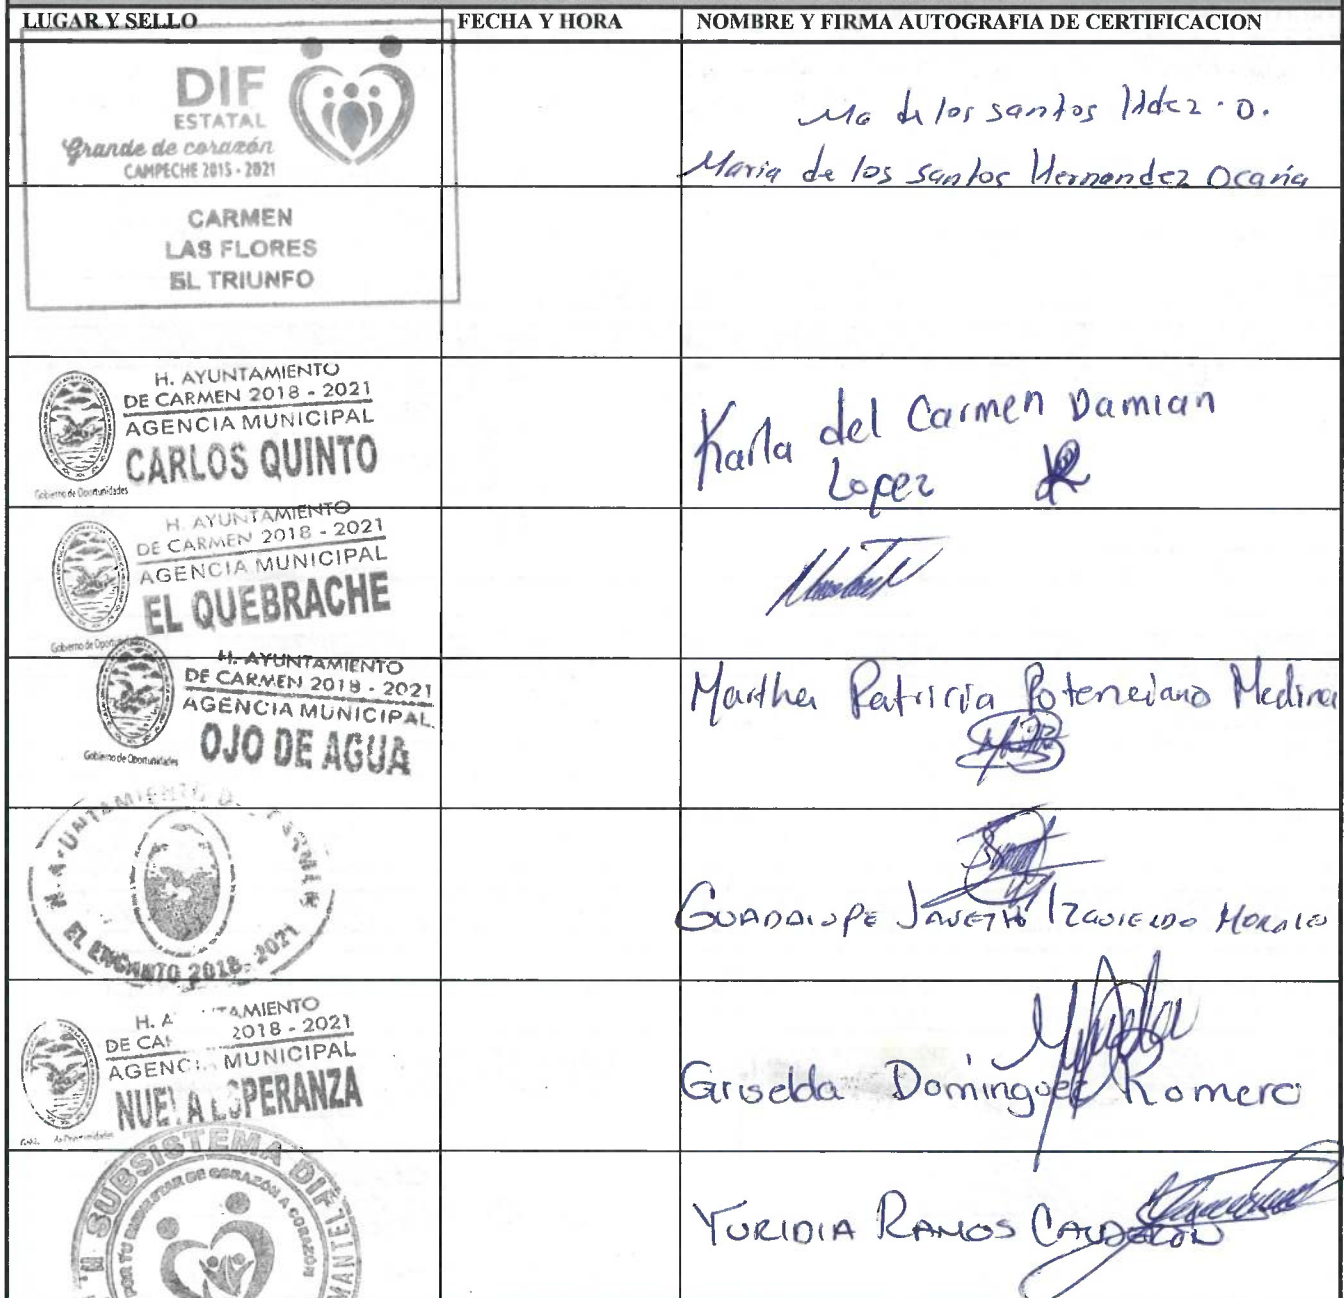 LUGAR Y SELLO FECHA Y HORA NOMBRE Y FIRMA AUTOGRAFIA DE CERTIFICACION
DIF
ESTATAL
Grande de corazón
CAMPECHE 2015 - 2021
Ma de los santos Hdez. O.
Maria de los santos Hernandez Ocaña
CARMEN
LAS FLORES
EL TRIUNFO
H. AYUNTAMIENTO
DE CARMEN 2018 - 2021
AGENCIA MUNICIPAL
CARLOS QUINTO
Gobierno de Oportunidades
Karla del Carmen Damian
Lopez
H. AYUNTAMIENTO
DE CARMEN 2018 - 2021
AGENCIA MUNICIPAL
EL QUEBRACHE
Gobierno de
H. AYUNTAMIENTO
DE CARMEN 2018 - 2021
AGENCIA MUNICIPAL
OJO DE AGUA
Gobierno de Oportunidades
Martha Patricia Potenciano Medina
H. AYUNTAMIENTO DE CARMEN
EL ENCANTO 2018-2021
GUADALUPE JANETH IZQUIERDO MORALES
H. A TAMIENTO
DE CA 2018 - 2021
AGENCI MUNICIPAL
NUEVA ESPERANZA
Griselda Dominguez Romero
SUBSISTEMA DIF
POR TU BIENESTAR DE CORAZÓN A CORAZÓN
YURIDIA RAMOS CALDERON